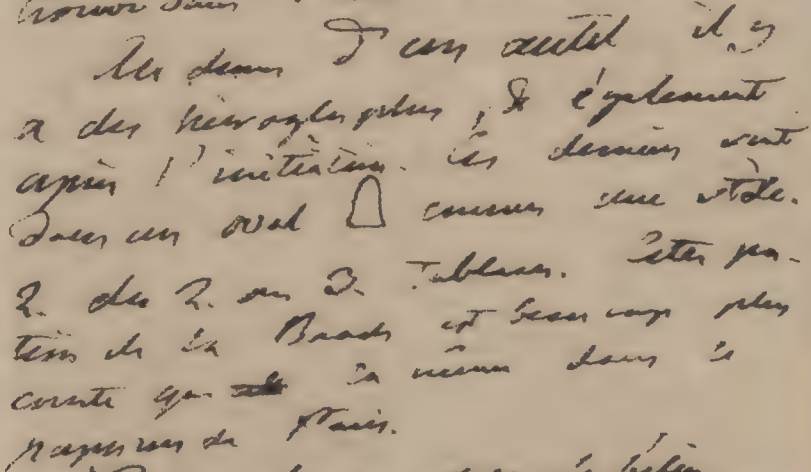 trouver dans
les deux d'un autel il y
a des hieroglyphes, & également
après l'initiation. Ces derniers sont
dans un oval comme une stèle.
2. des 2. ou 3. Tableaux. Cette par-
tie de la est beaucoup plus
courte que la même dans le
papyrus de Paris.